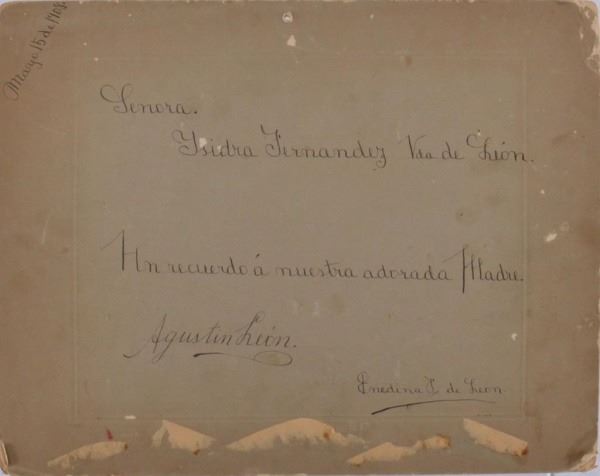 Mayo 15 de 1908
Senora.
Ysidra Fernandez Vda de León.
Un recuerdo á nuestra adorada Madre.
Agustin León.
Enedina F. de Leon